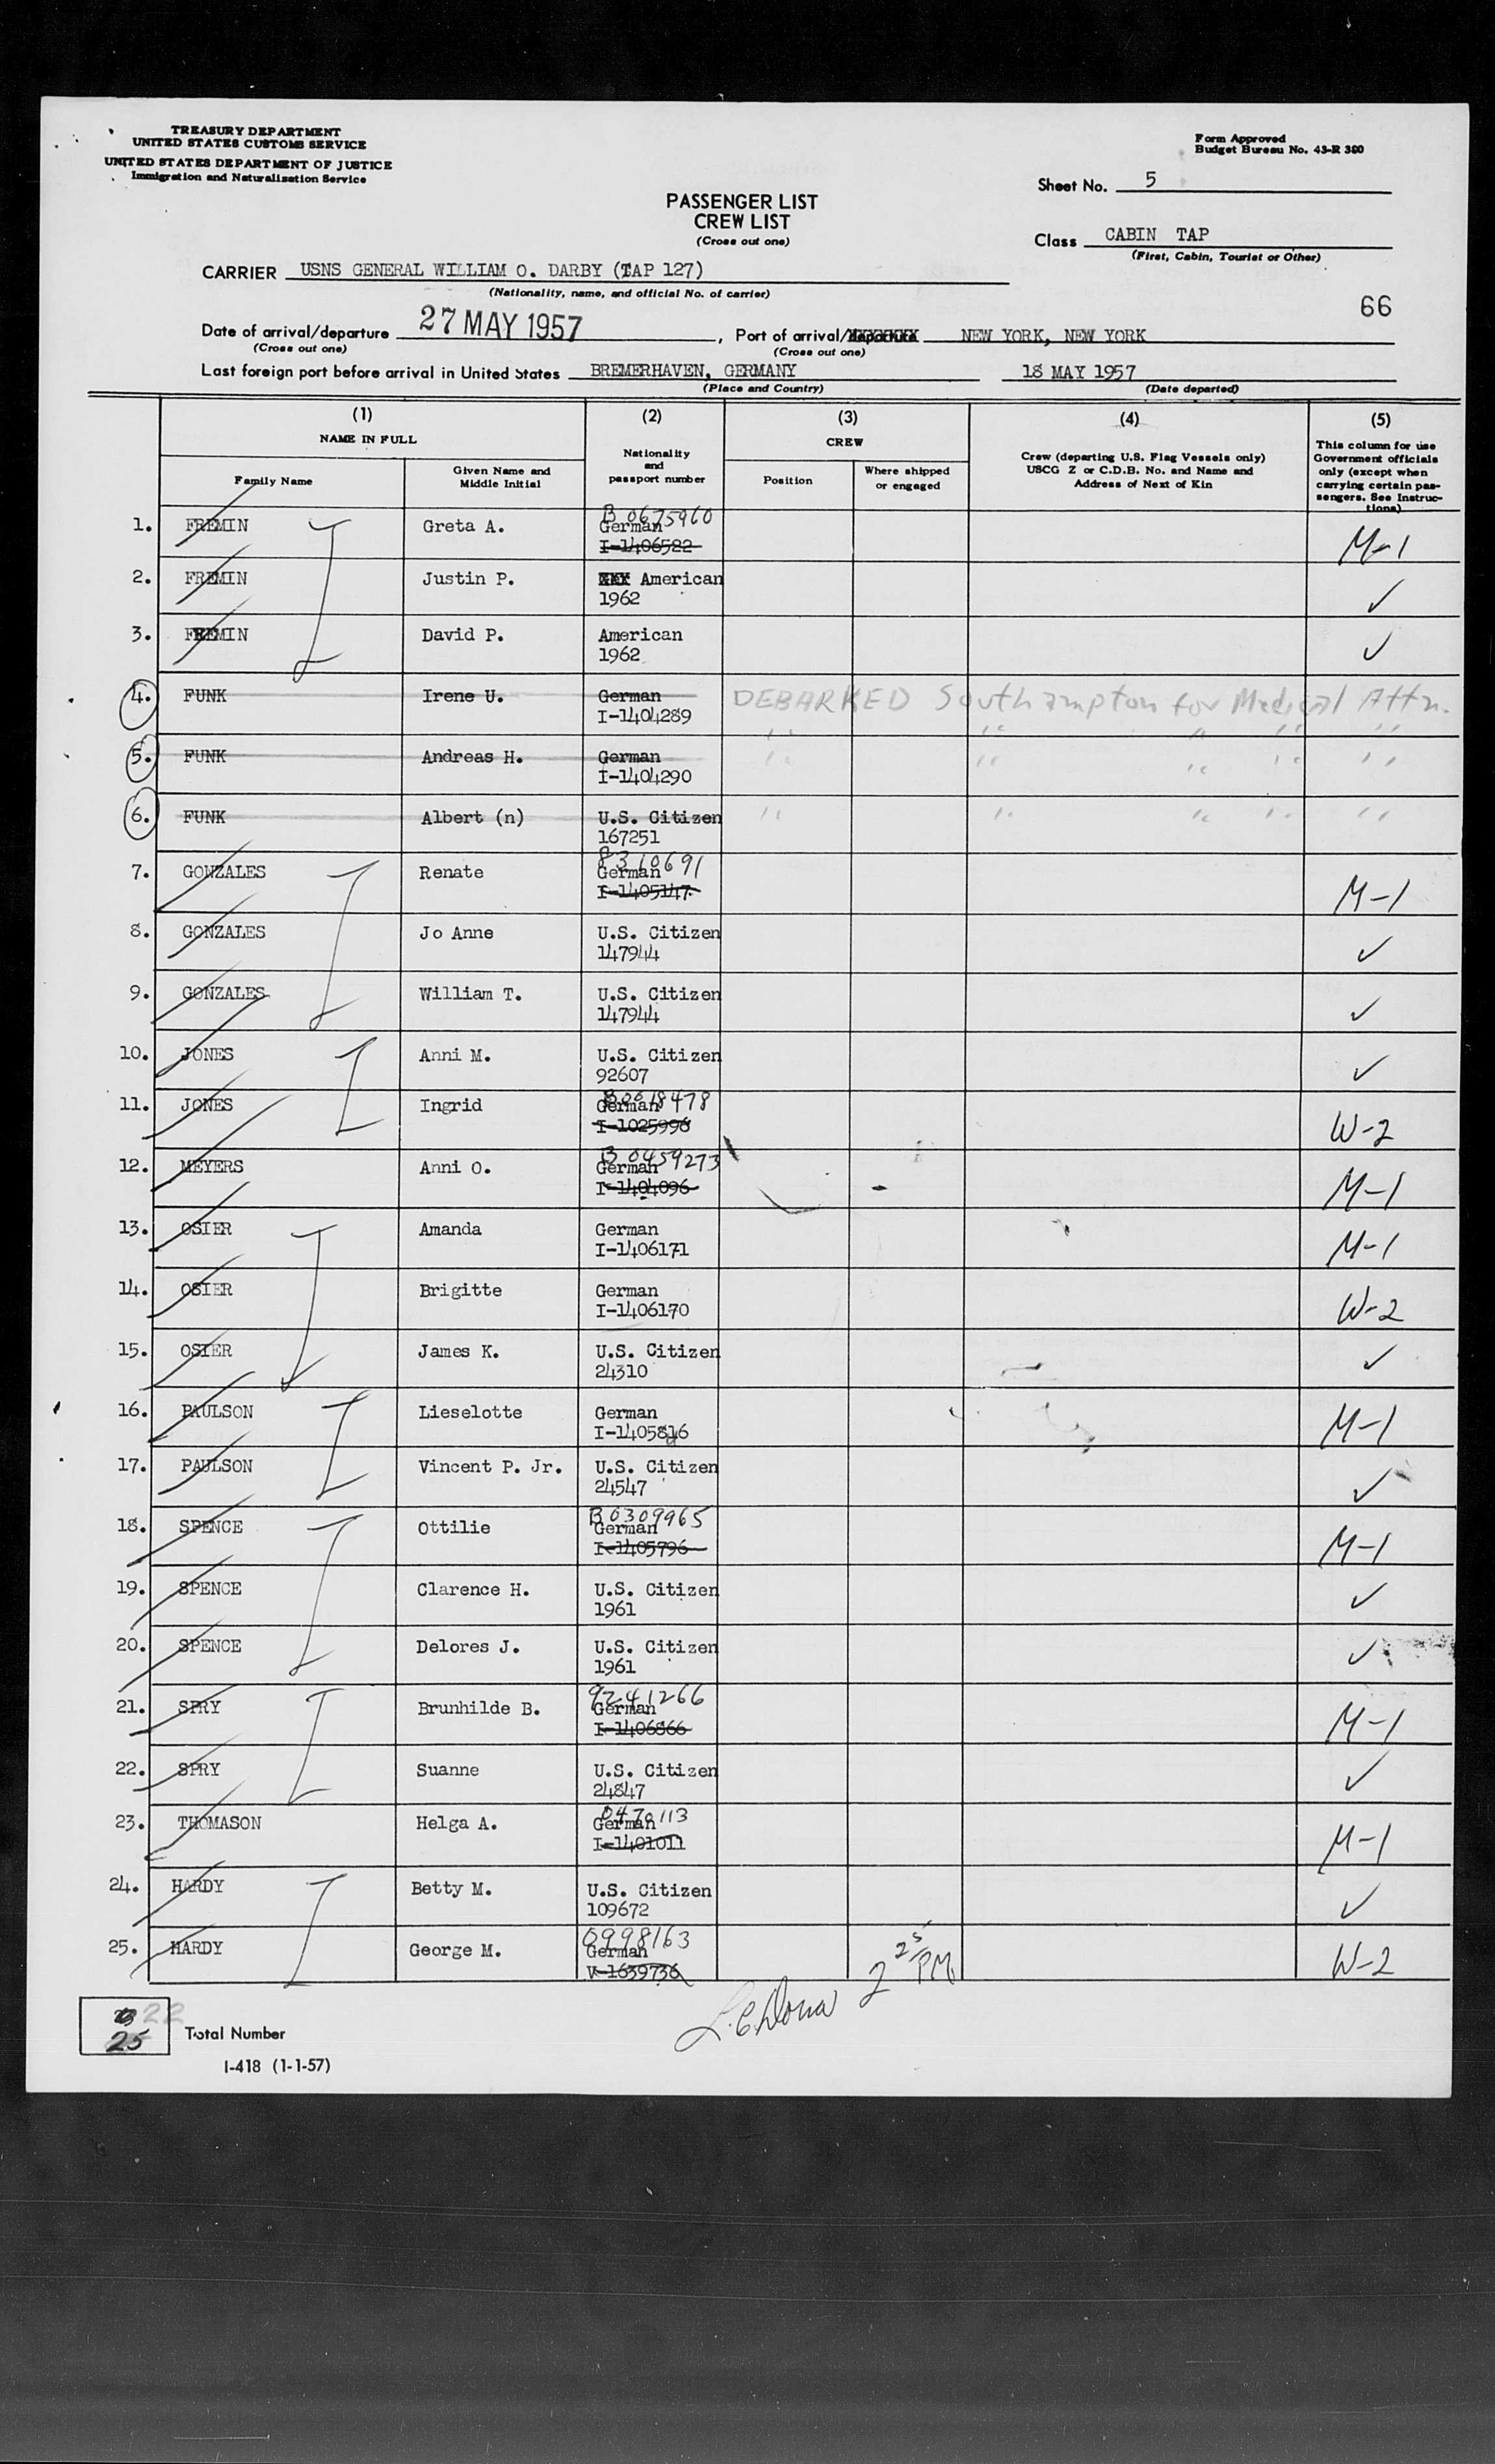 TREASURY DEPARTMENT
UNITED STATES CUSTOMS SERVICE
UNITED STATES DEPARTMENT OF JUSTICE
Immigration and Naturalization Service
Form Approved
Budget Bureau No. 43-R 380
Sheet No. 5
PASSENGER LIST
CREW LIST
(Cross out one)
Class CABIN TAP
(First, Cabin, Tourist or Other)
CARRIER USNS GENERAL WILLIAM O. DARBY (TAP 127)
(Nationality, name, and official No. of carrier)
66
Date of arrival/departure 27 MAY 1957, Port of arrival/departure NEW YORK, NEW YORK
(Cross out one) (Cross out one)
Last foreign port before arrival in United States BREMERHAVEN, GERMANY 18 MAY 1957
(Place and Country) (Date departed)
(1) (2) (3) (4) (5)
NAME IN FULL
Family Name
Given Name and
Middle Initial
Nationality
and
passport number
CREW
Position
Where shipped
or engaged
Crew (departing U.S. Flag Vessels only)
USCG Z or C.D.B. No. and Name and
Address of Next of Kin
This column for use
Government officials
only (except when
carrying certain pas-
sengers. See Instruc-
tions)
B 0675960
1. FREMIN Greta A. German
I-1406522 M-1
2. FREMIN Justin P. American
1962 ✓
3. FREMIN David P. American
1962 ✓
4. FUNK Irene U. German DEBARKED Southampton for Medical Attn.
I-1404289 " " " " "
5. FUNK Andreas H. German " " " " "
I-1404290
6. FUNK Albert (n) U.S. Citizen " " " " "
167251
8310691
7. GONZALES Renate German
I-1405147 M-1
8. GONZALES Jo Anne U.S. Citizen
147944 ✓
9. GONZALES William T. U.S. Citizen
147944 ✓
10. JONES Anni M. U.S. Citizen
92607 ✓
B0618478
11. JONES Ingrid German
I-1025996 W-2
B 0459273
12. MEYERS Anni O. German
I-1404096 M-1
13. OSIER Amanda German
I-1406171 M-1
14. OSIER Brigitte German
I-1406170 W-2
15. OSIER James K. U.S. Citizen
24310 ✓
16. PAULSON Lieselotte German
I-1405816 M-1
17. PAULSON Vincent P. Jr. U.S. Citizen
24547 ✓
B0309965
18. SPENCE Ottilie German
I-1405796 M-1
19. SPENCE Clarence H. U.S. Citizen
1961 ✓
20. SPENCE Delores J. U.S. Citizen
1961 ✓
9241266
21. SPRY Brunhilde B. German
I-1406866 M-1
22. SPRY Suanne U.S. Citizen
24847 ✓
0470113
23. THOMASON Helga A. German
I-1401011 M-1
24. HARDY Betty M. U.S. Citizen
109672 ✓
0998163
25. HARDY George M. German
V-1639736 W-2
2 25 PM
22
25 Total Number
I-418 (1-1-57)